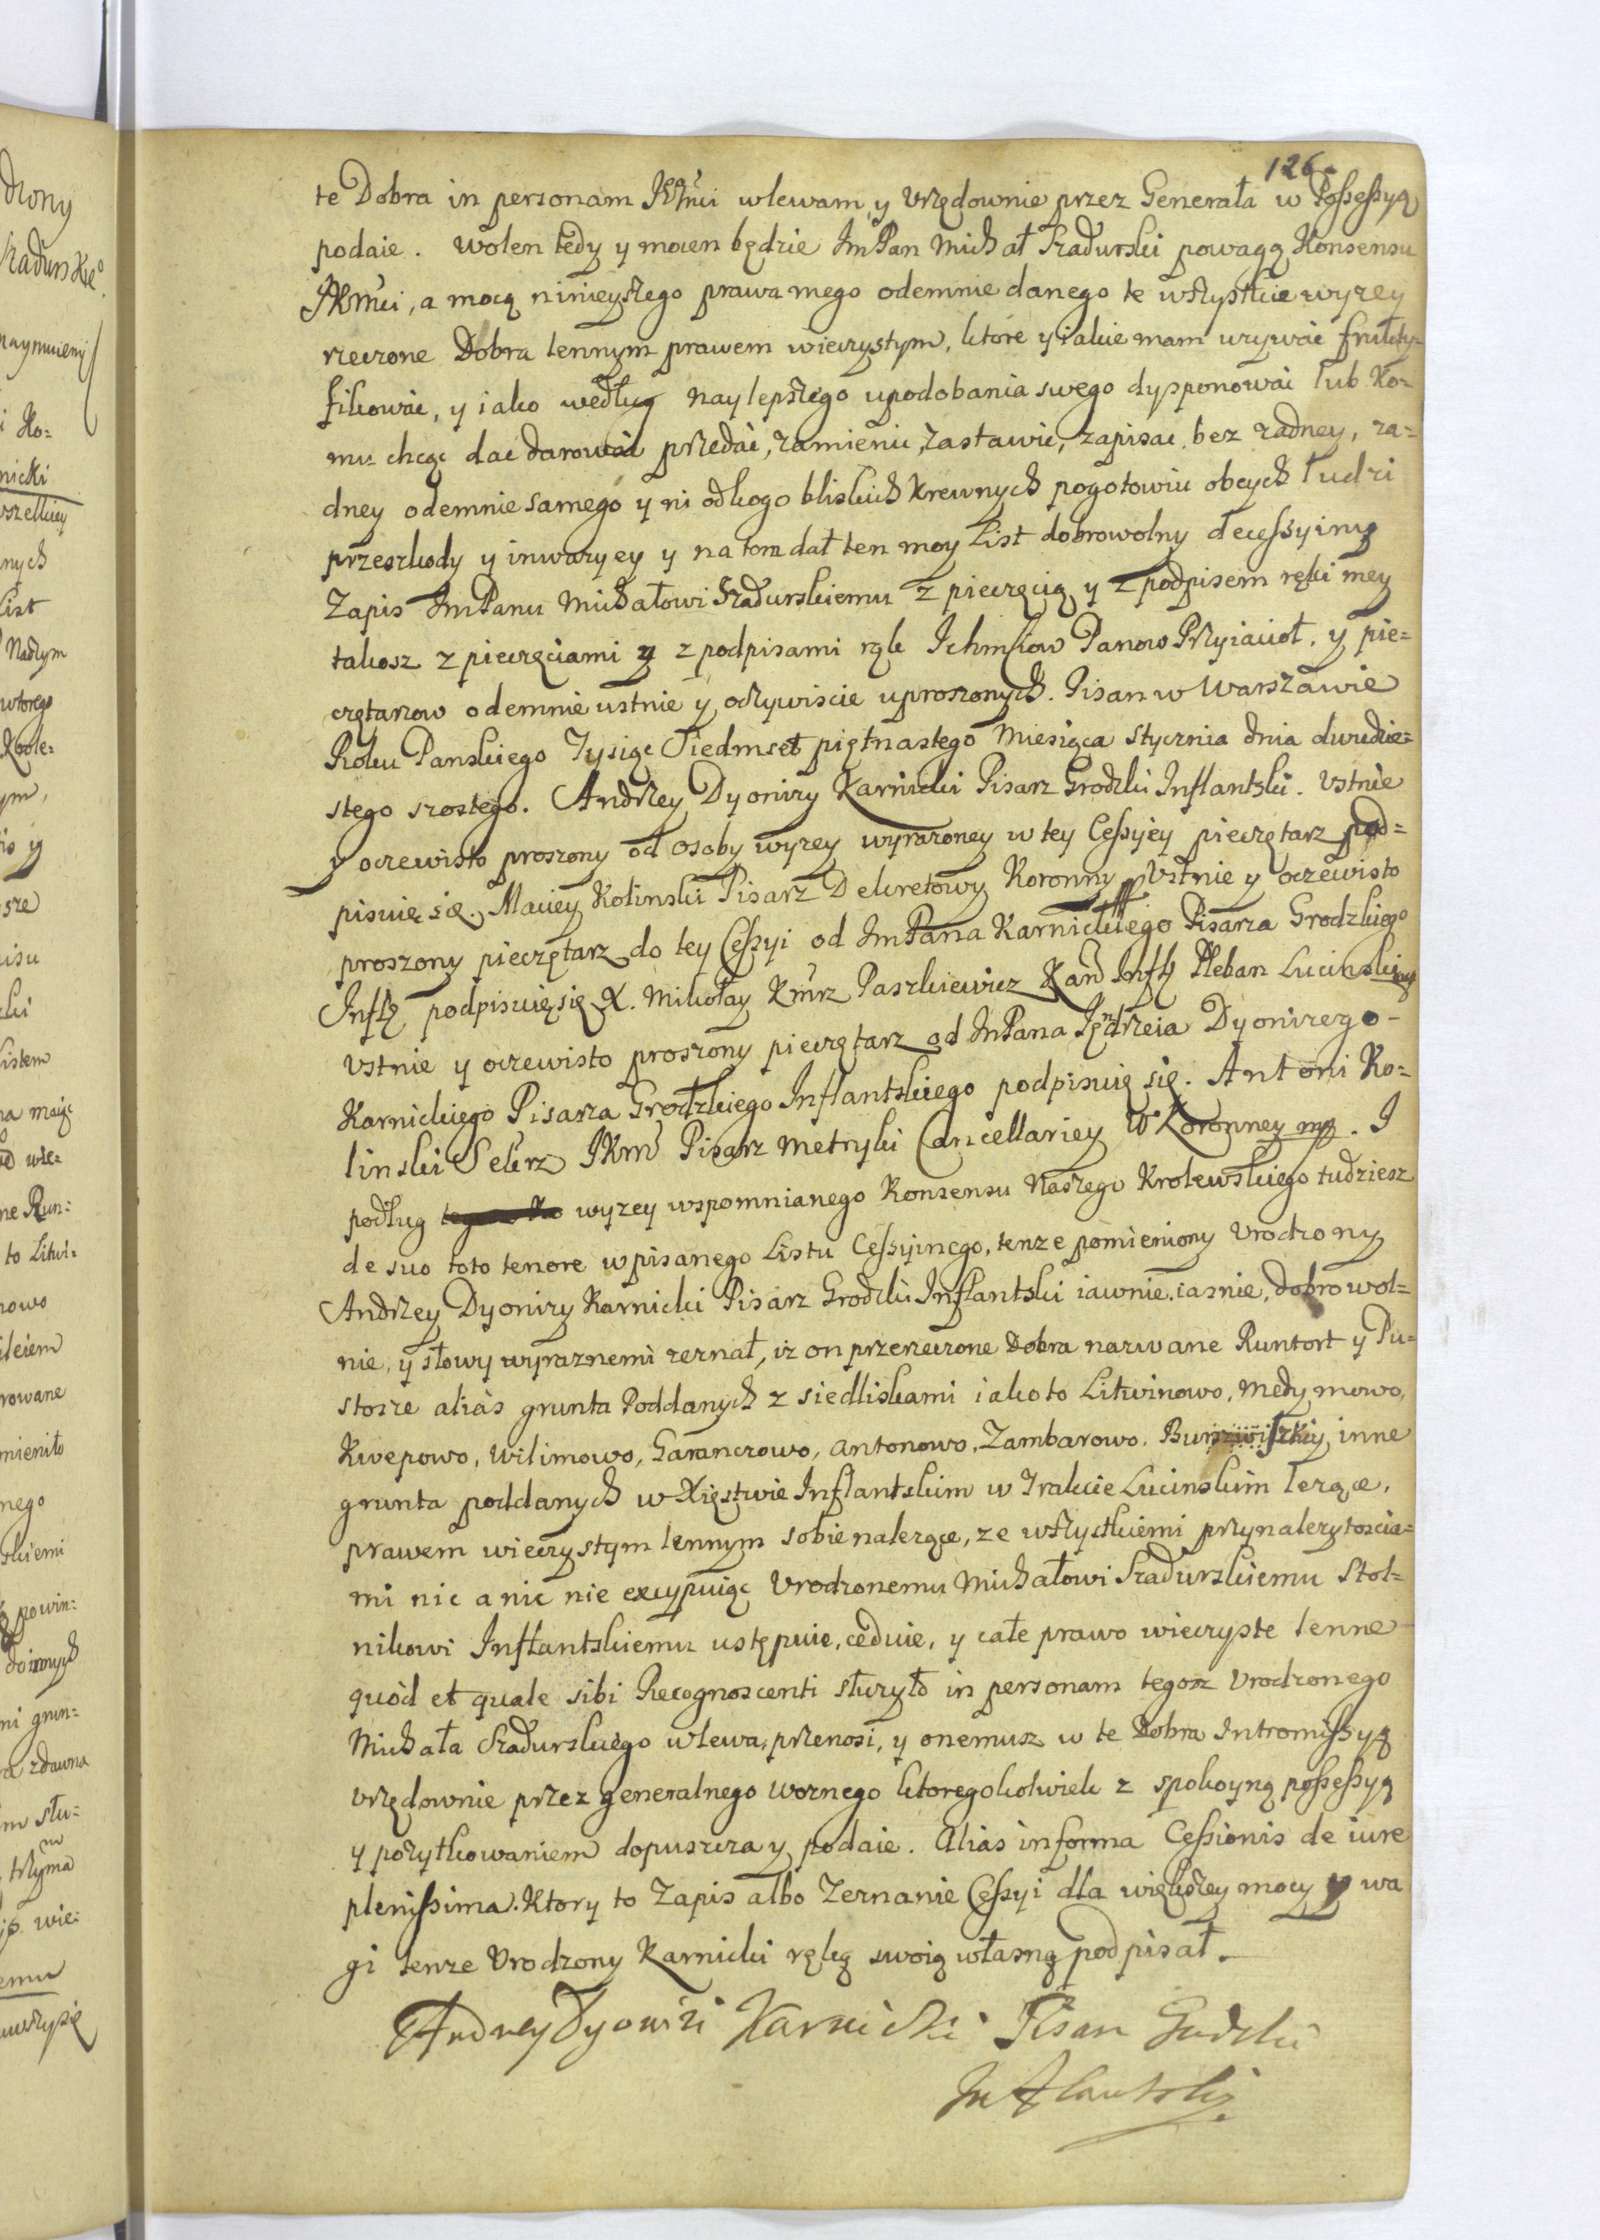 126.
te Dobra in personam JKMci wlewam y Vrzędownie przez Generała w Possessyą
podaie. Wolen tedy y mocen będzie JmPan Michał Szadurski powagą Konsensu
JKMci, a mocą ninieyszego prawa mego odemnie danego te wszystkie wyzey
rzeczone Dobra lennym prawem wieczystym, ktore y iakie mam uzywac frukty-
fikowac, y iako według naylepszego upodobania swego dysponowac lub ko-
mu chcąc dac darowac przedac, zamienic, zastawic, zapisac bez zadney, za-
dney odemnie samego y ni odkogo bliskich krewnych pogotowiu obcych ludzi
przeszkody y inwazyey y na tom dał ten moy List dobrowolny decessyiny
Zapis JmPanu Michałowi Szadurskiemu z pieczęcią y z podpisem ręki mey
takosz z pieczęciami y z podpisami rąk Ichmsciow Panow Przyiacioł, y pie-
czętarzow odemnie ustnie y oczywiscie uproszonych. Pisan w Warszawie
Roku Panskiego Tysiąc Siedmset piętnastego Miesiąca Stycznia dnia dwudzie-
stego szostego. Andrzey Dyonizy Karnicki Pisarz Grodzki Inflantski. Vstnie
y oczewisto proszony od osoby wyzey wyrazoney w tey Cessyiey pieczętarz pod-
pisuię się. Maciey Kolinski Pisarz Dekretowy Koronny Vstnie y oczewisto
proszony pieczętarz do tey Cessyi od JmPana Karnickiego Pisarza Grodzkiego
Infl podpisuię się X. Mikołay Kmrz Paszkiewicz Kan Infl Pleban Lucinski mp
Vstnie y oczewisto proszony pieczętarz od JmPana Jędrzeia Dyonizego
Karnickiego Pisarza Grodzkiego Inflantskiego podpisuię się. Antoni Ko-
linski Sekrz JKM Pisarz Metryki Cancellariey W Koronney mp. I
podług wyzey wspomnianego Konsensu Naszego Krolewskiego tudziesz
de suo toto tenore wpisanego Listu Cessyinego, tenze pomieniony Vrodzony
Andrzey Dyonizy Karnicki Pisarz Grodzki Inflantski iawnie iasnie, dobrowol-
nie, y słowy wyraznemi zeznał, iz on przerzeczone Dobra nazwane Runtort y Pu-
stosze alias grunta Poddanych z siedliskami iako to Litwinowo, Medymowo,
Kwepowo, Wilimowo, Garanczowo, Antonowo, Zambarowo, Burzwiszki y inne
grunta poddanych w Xięstwie Inflantskim w Trakcie Lucinskim lezące,
prawem wieczystym lennym sobie nalezące, ze wszystkiemi przynaleztoscia-
mi nic a nic nie excypuiąc Vrodzonemu Michałowi Szadurskiemu Stol-
nikowi Inflantskiemu ustępuie, ceduie, y całe prawo wieczyste lenne
quod et quale sibi Recognoscenti słuzyło in personam tegosz Vrodzonego
Michała Szadurskiego wlewa, przenosi, y onemusz w te Dobra Intromissyą
vrzędownie przez generalnego woznego ktoregokolwiek z spokoyną possessyą
y pozytkowaniem dopuszcza y podaie. Alias in forma Cessionis de iure
plenissima. Ktory to Zapis albo Zeznanie Cessyi dla większey mocy y wa
gi tenze Vrodzony Karnicki ręką swoią własną podpisał.
Andrzey Dyonizi Karnicki Pisarz Grodzki
Inflantski